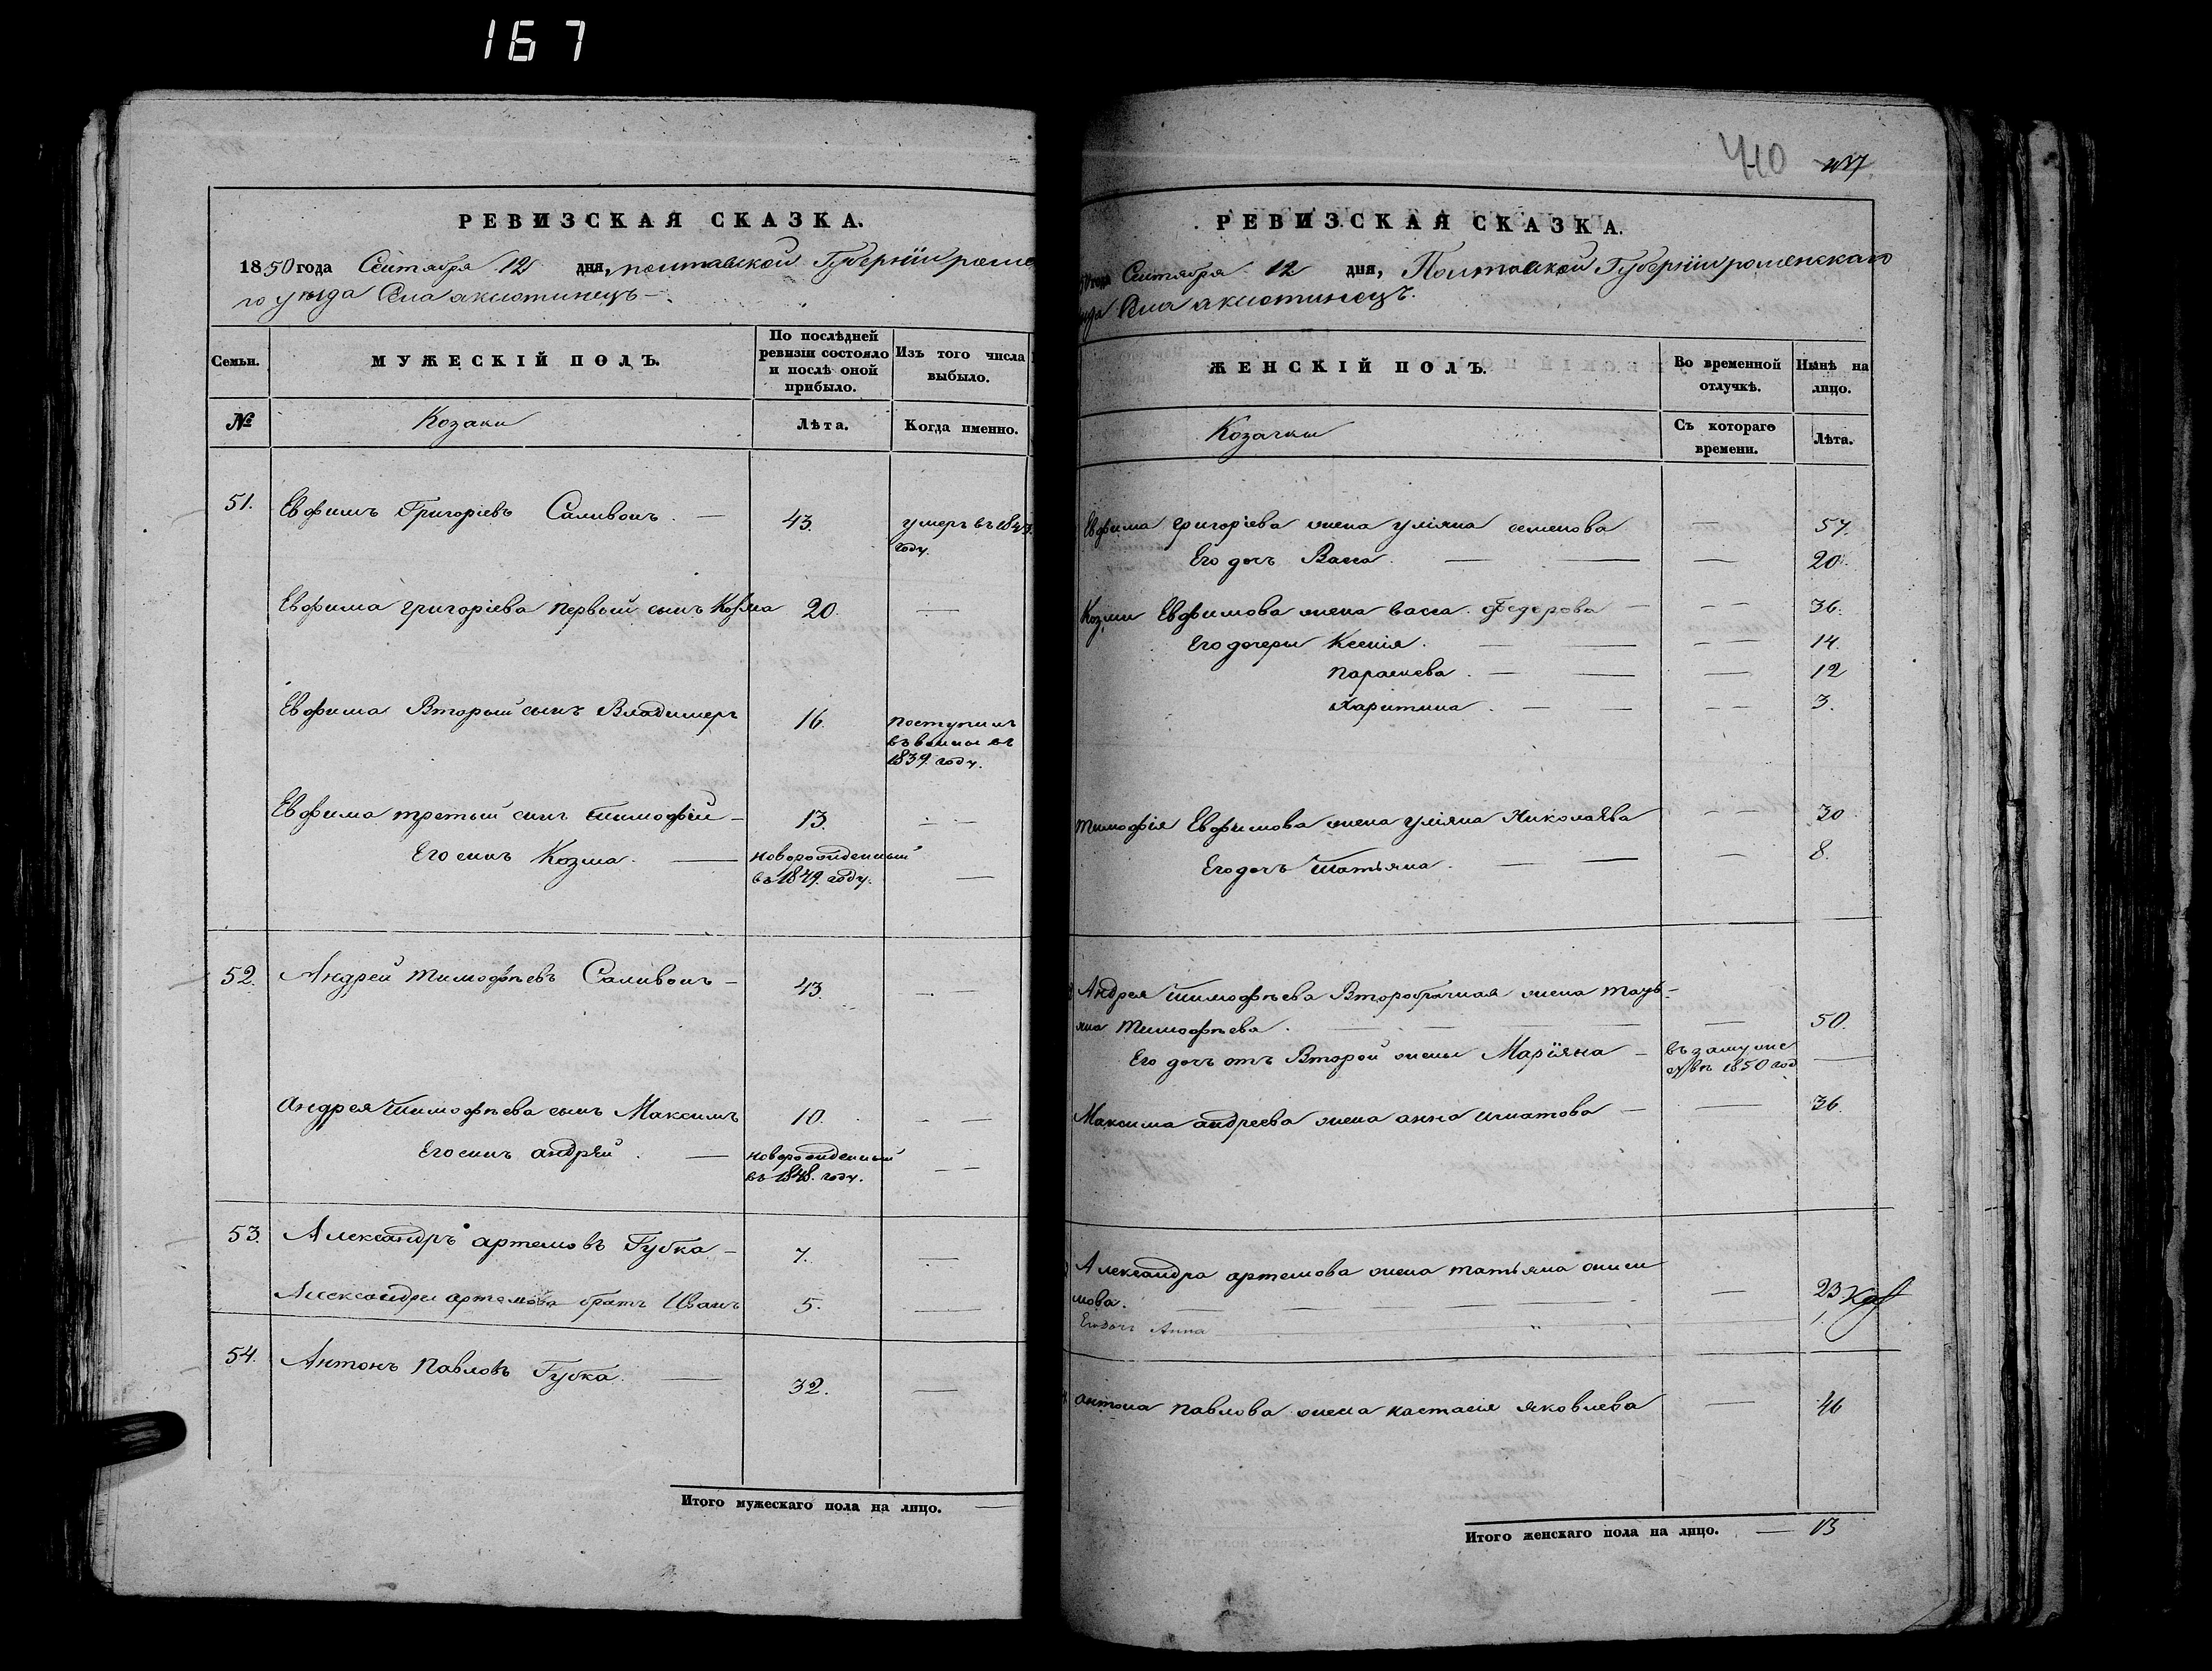 167
РЕВИЗСКАЯ СКАЗКА.
1850 года Сентября 12 дня, полтавской Губерніи роме
го уѣзда Села аксютинецъ
Семьи.
МУЖЕСКІЙ ПОЛЪ.
По послѣдней ревизіи состояло и послѣ оной прибыло.
Изъ того числа выбыло.
№
Козаки
Лѣта.
Когда именно.
51. Евфимъ Григоріевъ Саливонъ. — 43. умеръ въ 1843
году.
Евфима григоріева первый сынъ Козма 20. —
Евфима Вторый сынъ Владимеръ 16. поступилъ
въ военны въ
1839. году.
Евфима третый сынъ тимофій — 13. — —
Его сынъ Козма. — новорожденный
въ 1849. году. —
52. Андрей тимофѣевъ Саливонъ — 43. — —
Андрея тимофѣева сынъ Максимъ 10. — —
Его сынъ андрѣй. — новорожденный
въ 1848. году. — —
53. Александръ артемовъ Губка — 7. —
Александра артемова братъ Иванъ 5. —
54. Антонъ Павловъ Губка. — 32. —
Итого мужескаго пола на лицо. —
410
РЕВИЗСКАЯ СКАЗКА.
50 года Сентября 12 дня, Полтавской Губерніи роменскаго
зда Села аксютинецъ.
ЖЕНСКІЙ ПОЛЪ.
Во временной отлучкѣ.
Нынѣ на лицо.
Козачки
Съ котораго времени.
Лѣта.
Евфима григоріева жена уліяна семенова — 57.
Его дочъ Васса. — — — 20.
Козми Евфимова жена васса федерова — — — 36.
Его дочеры Ксенія. — — — — 14.
параскева. — — — 12
Харитина. — — — — 3.
тимофія Евфимова жена уліяна Николаява — — 30
Его дочъ татьяна. — — — 8.
Андрея тимофѣева Второбрачная жена тать-
яна тимофѣева. — — — — 50.
Его дочъ отъ Второй жены Маріяна — въ замуже
въ 1850 год —
Максима андреева жена анна игнатова — — 36.
Александра артемова жена татьяна
мова. — — — — 23
Его дочъ Анна — " — 1
антона павлова жена настасія яковлева — 46
Итого женскаго пола на лицо. — 13